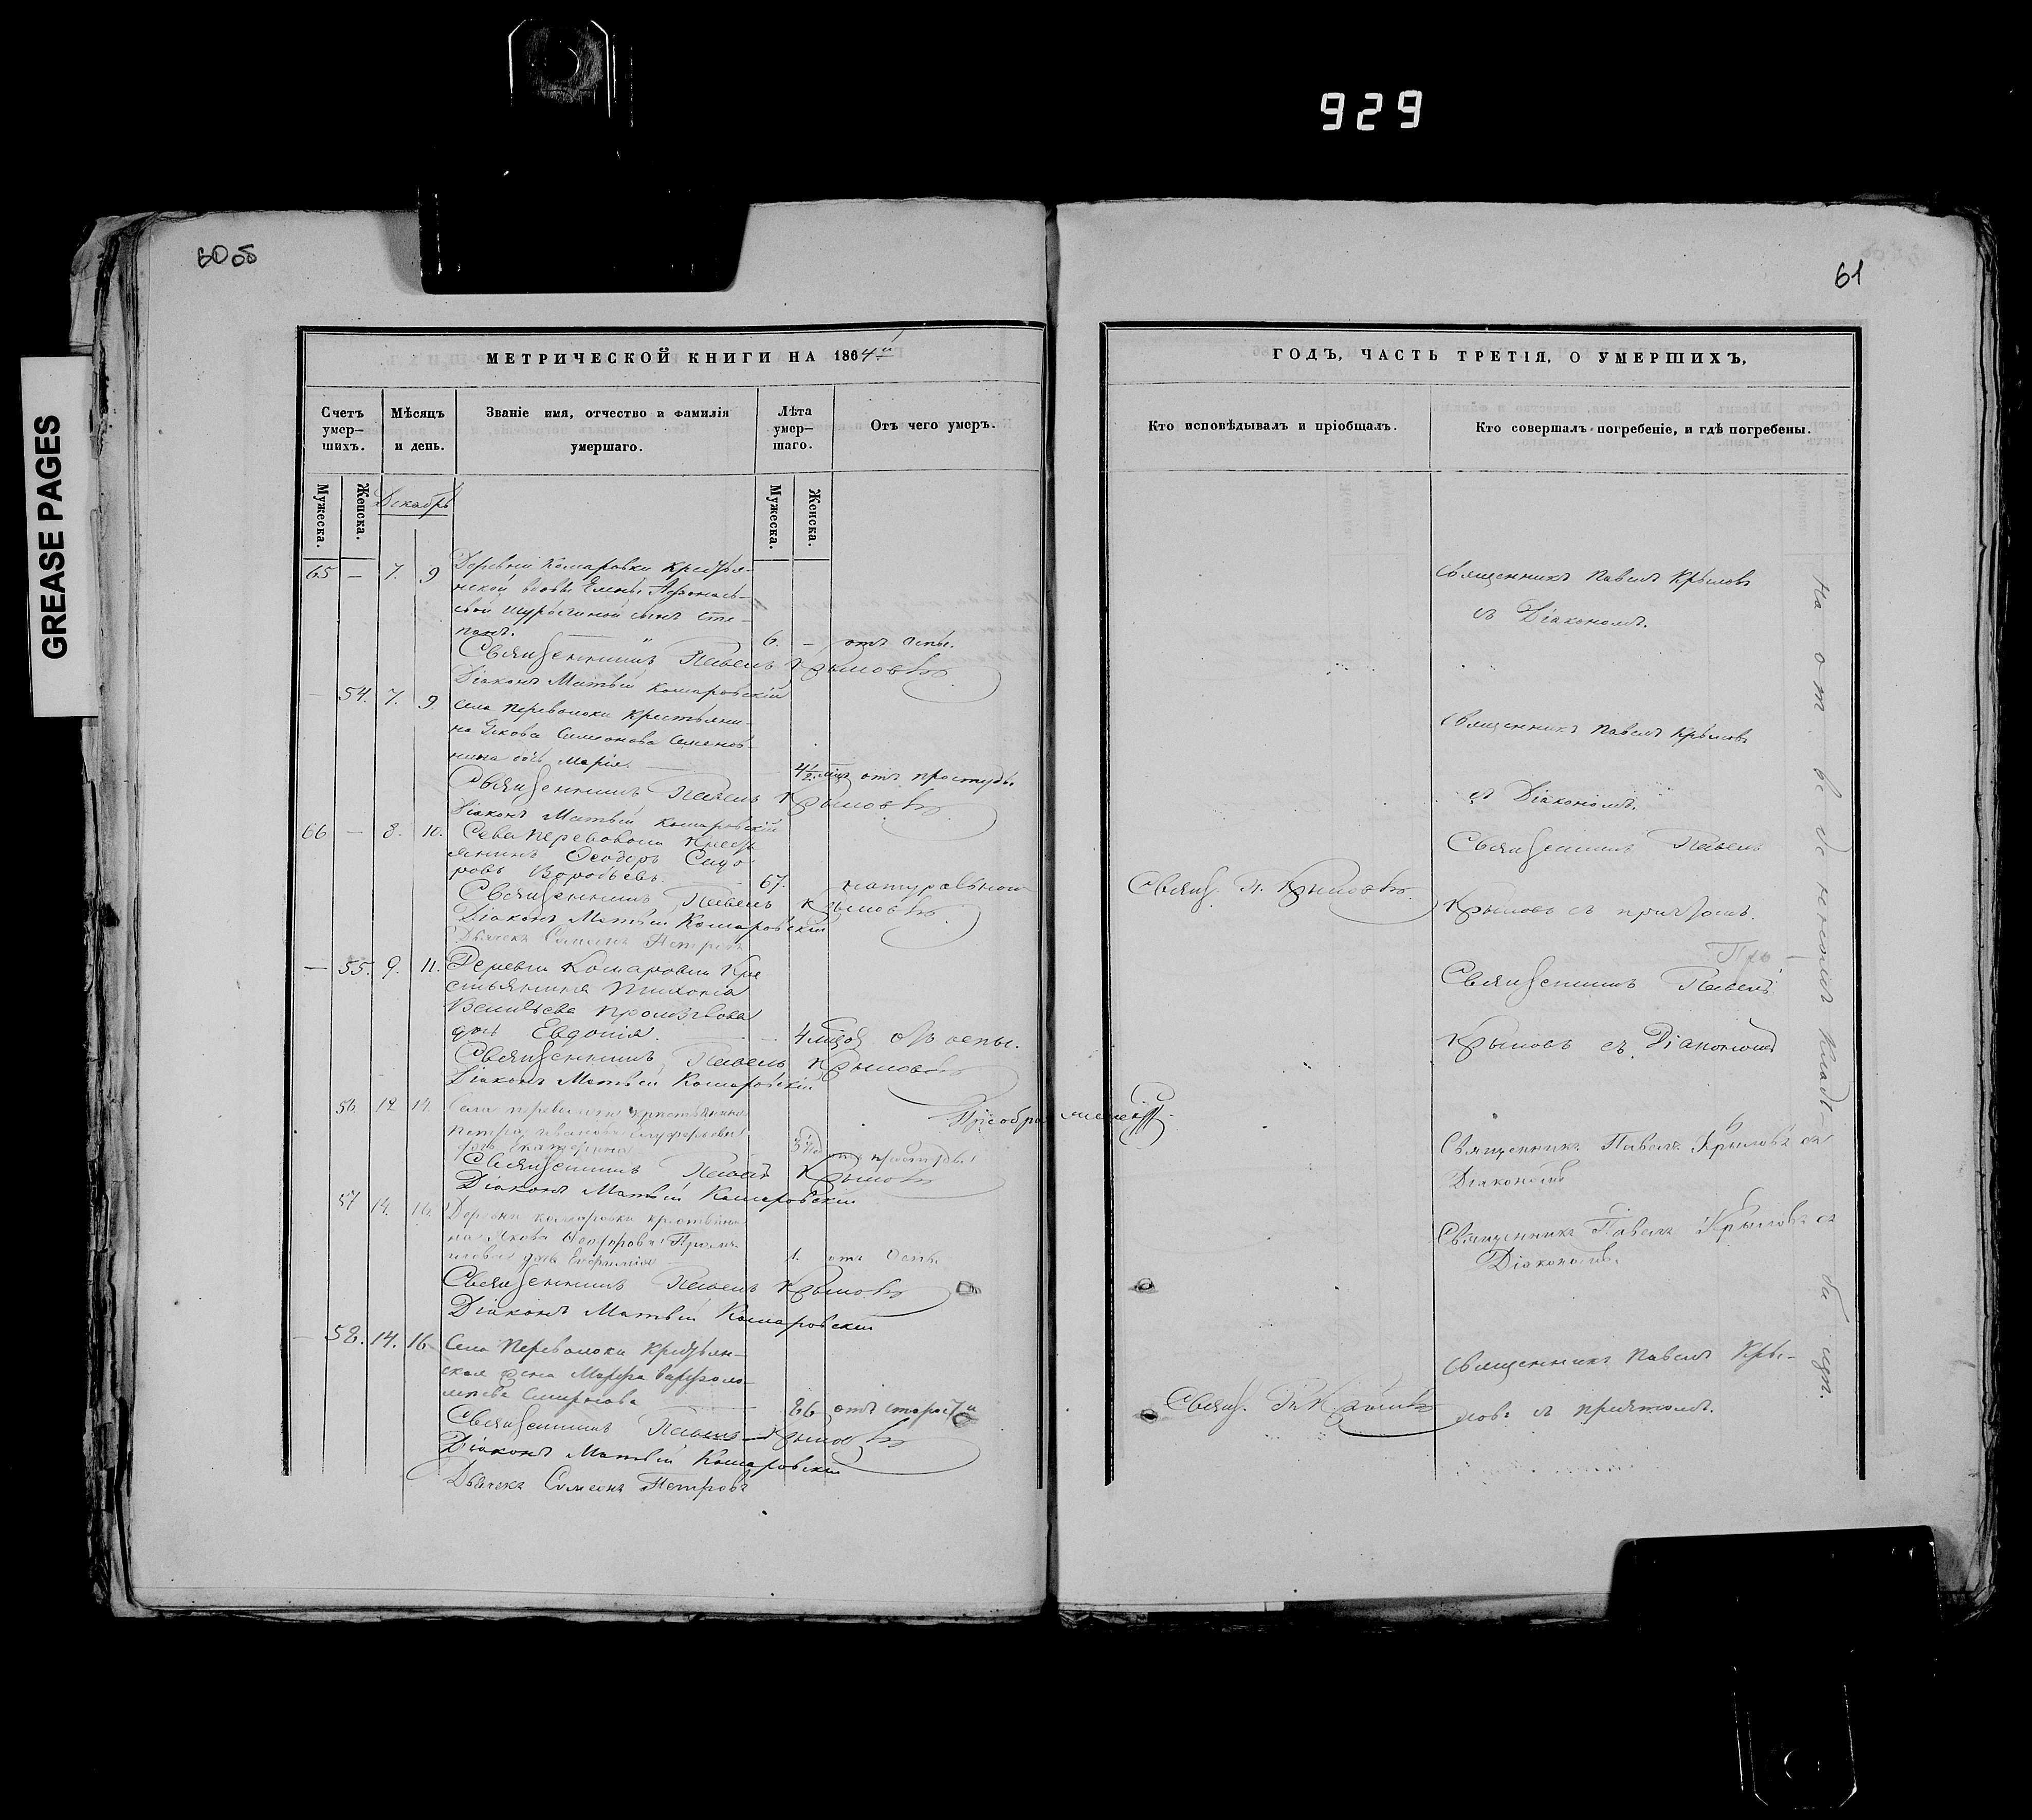 929
GREASE PAGES
60 об
МЕТРИЧЕСКОЙ КНИГИ НА 1864й
Счетъ умер-шихъ.
Мѣсяцъ и день.
Званіе имя, отчество и фамилія умершаго.
Лѣта умер-шаго.
Отъ чего умеръ.
Мужеска.
Женска.
Декабрь
Мужеска.
Женска.
65 — 7. 9 Деревни Комаровки крестья-
нской вдовы Елены Афонась-
евой сынъ Сте-
панъ. 6. — отъ оспы.
Священникъ Павелъ Крыловъ
Діаконъ Матвѣй Комаровскій
— 54. 7. 9. села Переволоки крестьяни-
на Якова Симеонова Семенов-
дочь Марія. 4 1/2 мѣс. отъ простуды
Священникъ Павелъ Крыловъ
Діаконъ Матвѣй Комаровскій
66 — 8. 10. Села Переволоки Крест
янинъ Ѳеодоръ Сидо
ровъ Воробьевъ. 67. натуральною
Священникъ Павелъ Крыловъ
Діаконъ Матвѣй Комаровскій
Дьячекъ Симеонъ Петровъ
— 55. 9. 11. Деревни Комаровки Кре
стьянина Тихона
Васильева
дочь Евдокія. 4 мѣсяц отъ оспы.
Священникъ Павелъ Крыловъ
Діаконъ Матвѣй Комаровскій
56 12 14 Села Переволоки крестьянина
Петра Иванова
дочь Екатерина отъ простуды
Священникъ Павелъ Крыловъ
Діаконъ Матвѣй Комаровскій
57 14. 16. Деревни Комаровки крестьяни
на Якова Ѳеодорова
дочь 1. отъ оспы
Священникъ Павелъ Крыловъ
Діаконъ Матвѣй Комаровскій
— 58. 14. 16 Села Переволоки Крестьян-
ская жена Марфа Варфоло-
меева 86 отъ старости
Священникъ Павелъ Крыловъ
Діаконъ Матвѣй Комаровскій
Дьячекъ Симеонъ Петровъ
61
ГОДЪ, ЧАСТЬ ТРЕТІЯ, О УМЕРШИХЪ,
Кто исповѣдывалъ и пріобщалъ.
Кто совершалъ погребеніе, и гдѣ погребены.
Священникъ Павелъ Крыловъ
съ Діакономъ.
Священникъ Павелъ Крыловъ
съ Діакономъ.
Священникъ Павелъ
Свящ. П. Крыловъ
Крыловъ съ причтомъ.
Священникъ Павелъ
Крыловъ съ Діакономъ
Священникъ Павелъ Крыловъ съ
Діакономъ
Священникъ Павелъ Крыловъ съ
Діакономъ.
Священникъ Павелъ Кры-
Свящ. П. Крыловъ
ловъ съ причтомъ.
На отведенномъ кладбищѣ.